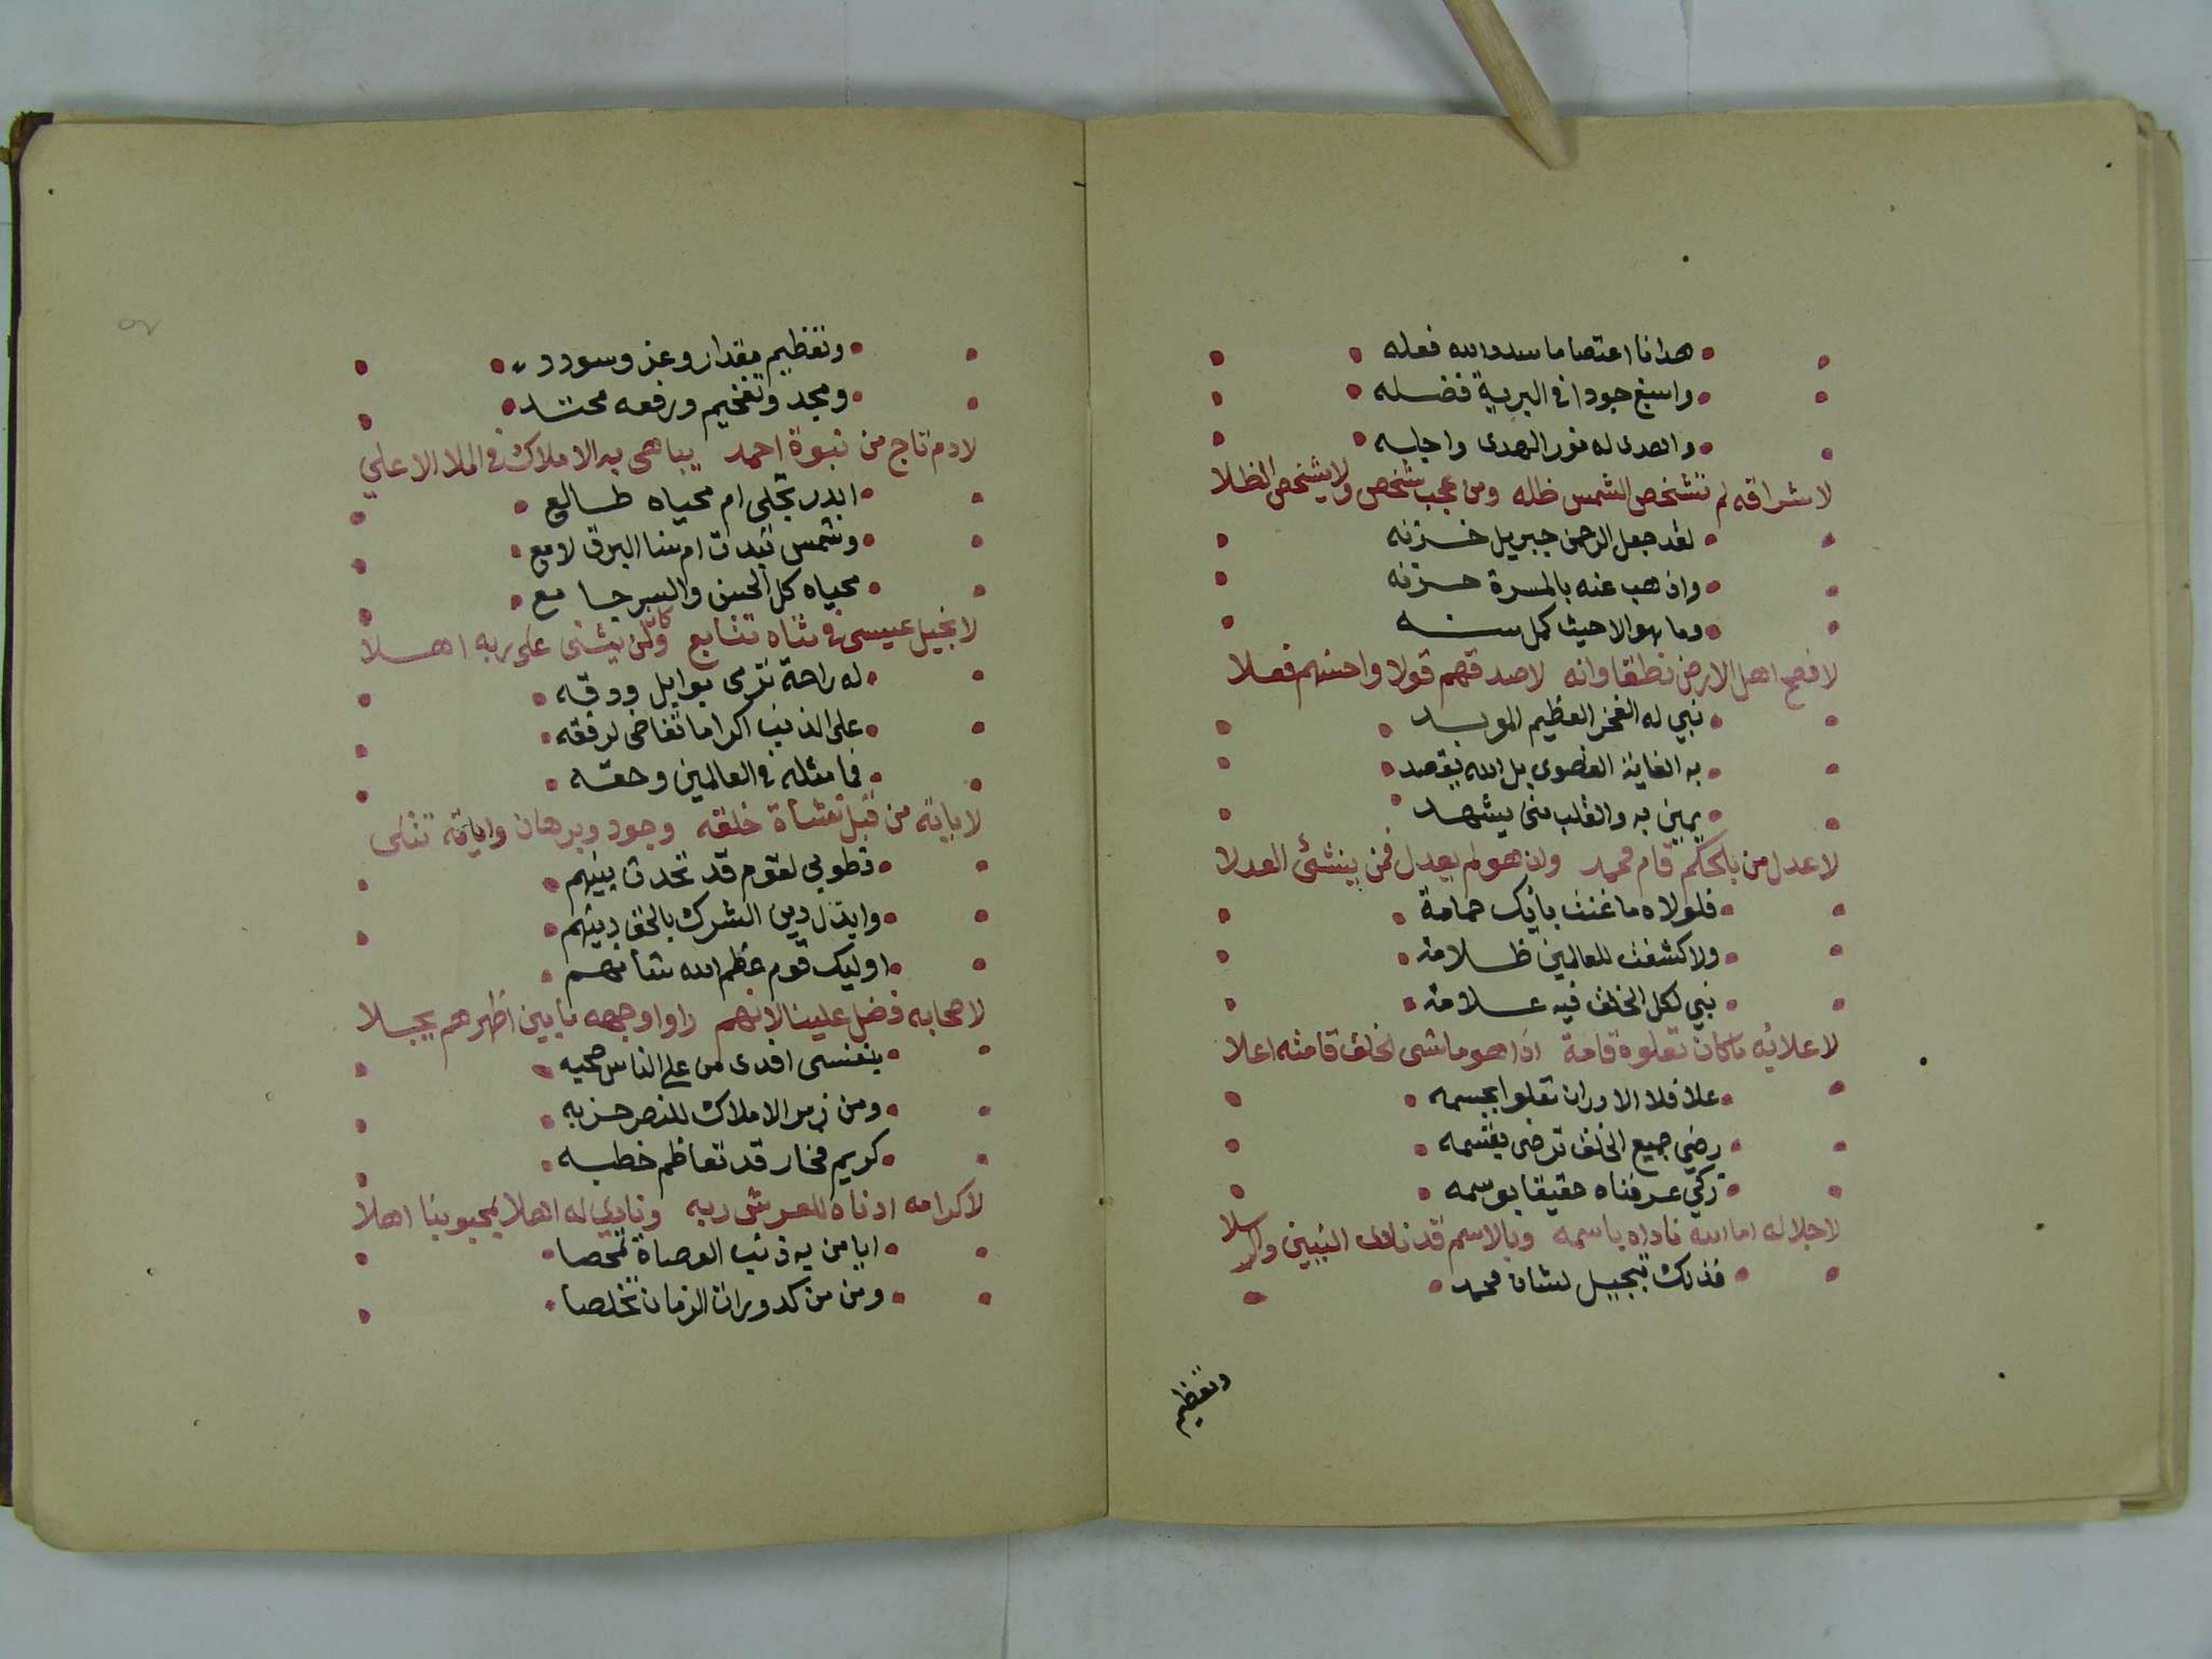 هدانا اعتصاما سدد الله فعله
واسبغ جودا في البرية فضله
واهدى له نور الهدى واجله
لاشراقه لم تشخص الشمس ظله ومن عجب شخص ولا يشخص الظلا
لقد جعل الرحمن جبريل خزنه
واذهب عنه بالمسرة حزنه
وما هو الا حيث كمل سنه
لافصح اهل الارض نطقا وانه لاصدقهم قولا واحسنهم فعلا
نبي له الفخر العظيم الموبد
به الغاية القصوى بل الله يقصد
يمين به والقلب منى يشهد
لاعدل من بالحكم قام محمد ولن هو لم يعدل فمن ينشئ العدلا
فلولاه ما غنت بايك حمامة
ولا كشفت للعالمين ظلامة
نبي لكل الخلق فيه علامة
لاعلائه ما كان تعلوه قامة اذا هو ماشى الخلق قامته اعلا
علا فلا الا وران تعلوا بجسمه
رضي جميع الخلق ترضى بقسمه
زكي عرفناه حقيقا بوسمه
لاجلاله اما الله ناداه باسمه وبالاسم قد نادى النبيين والرسلا
فذلك تبجيل لشان محمد
وتعظيم
وتعظيم مقدار وعز وسودد
ومجد وتفخيم ورفعه محتد
لادم تاج من نبوة احمد يباهى به الاملاك في الملا الاعلي
ابدر تجلى ام محياه طالع
وشمس تبدت ام سنا البرق لامع
محياه كل الحسن والسر جامع
لانجيل عيسى في ثناه تتابع وكل من يثنى على ربه اهلا
له راحة ترمى بوابل وودقه
على الذنب اكراما تغاضى لرفقه
فما مثله في العالمين وحقه
لاياته من قبل نشاة خلقه وجود وبرهان واياته تتلى
فطوبي لقوم قد تحدت بينهم
وابتذل دين الشرك بالحق دينهم
اوليك قوم عظم الله شانهم
لاصحابه فضل علينا لانهم راوا وجهه ما بين اظهرهم يجلا
بنفسى افدى من علي الناس صحبه
ومن زمر الاملاك للنصر حزبه
كريم فخار قد تعاظم خطبه
لاكرامه ادناه للعرش ربه ونادي له اهلا بمحبوبنا اهلا
ايا من به ذنب العصاة تمحصا
ومن من كدورات الزمان تخلصا